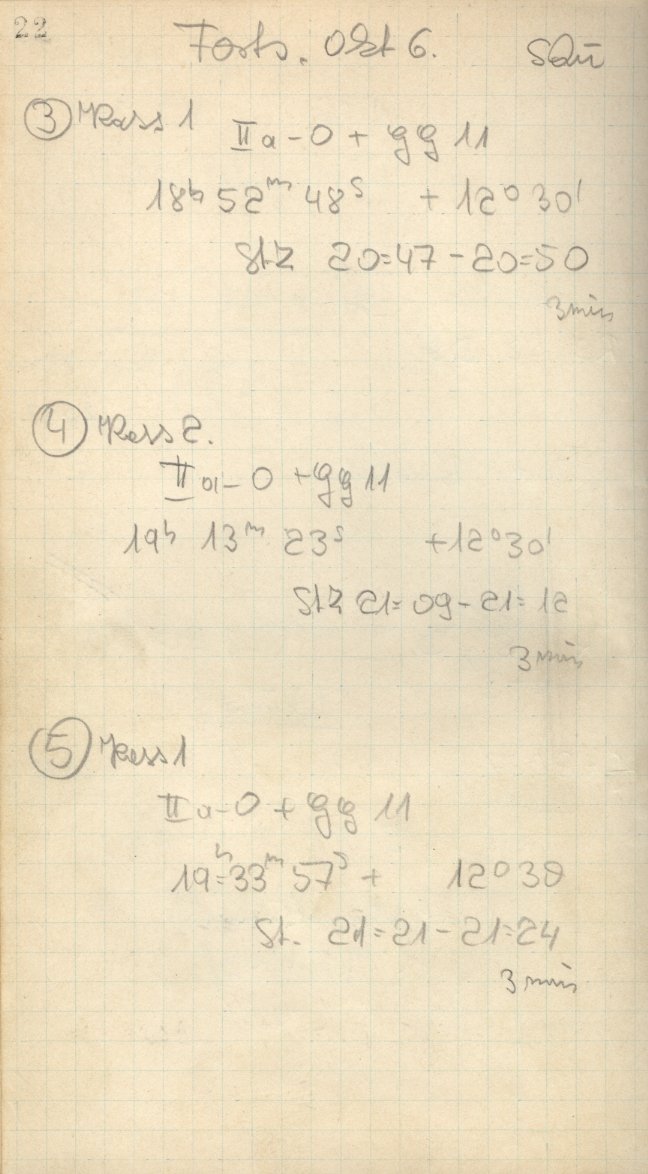 22
Forts. Okt 6.
③ Kass 1
IIa-O + gg 11
18h 52m 48s + 12° 30'
Stz 20=47 - 20=50
3 min
④ Kass 2.
IIa-O + gg 11
19h 13m 23s + 12° 30'
Stz 21=09 - 21=12
3 min
⑤ Kass 1
IIa-O + gg 11
19h=33m 57s + 12° 30
St. 21=21 - 21=24
3 min